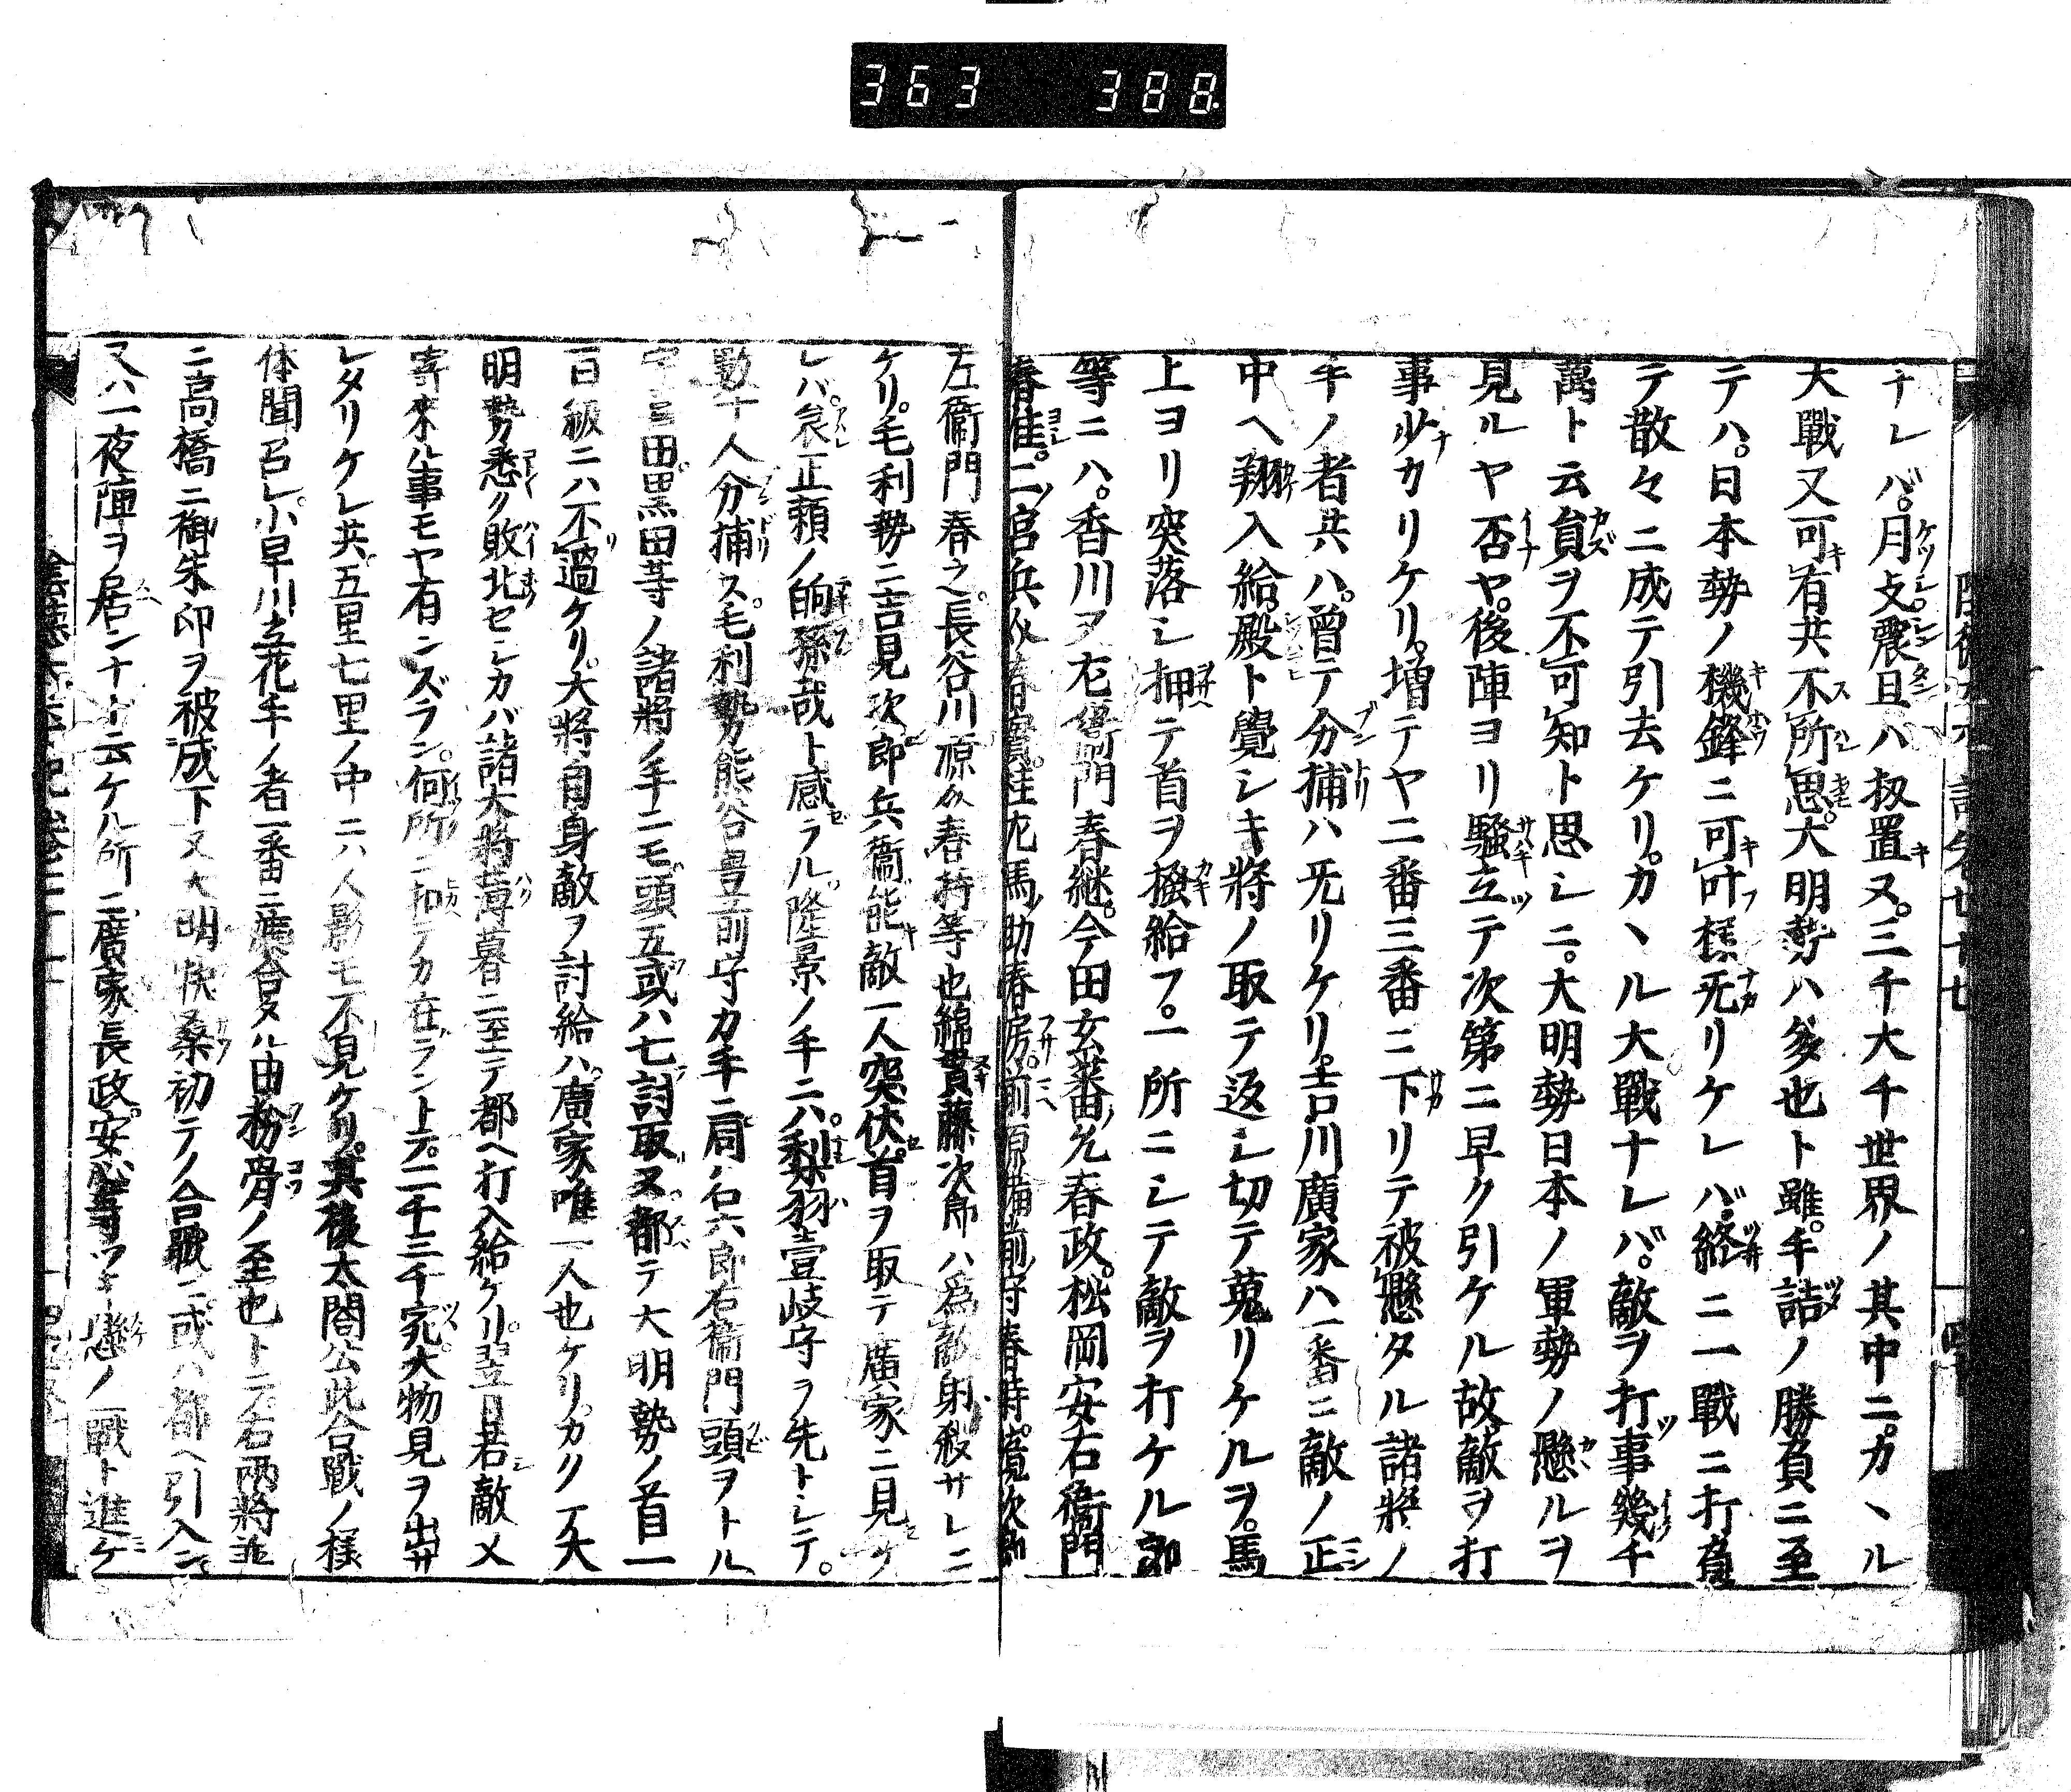 363 388
ナレバ。月支震旦ハ扨置又。三千大千世界ノ其中ニ。カヽル
大戰又可有共不所思。大明勢ハ多也ト雖。手詰ノ勝負ニ至
テハ。日本勢ノ機鋒ニ可叶様无リケレバ。終ニ一戰ニ打負
テ散々ニ成テ引去ケリ。カヽル大戰ナレバ。敵ヲ打事幾千
萬ト云員ヲ不可知ト思シニ。大明勢日本ノ軍勢ノ懸ルヲ
見ルヤ否ヤ。後陣ヨリ騷立テ次第ニ早ク引ケル故敵ヲ打
事少カリケリ。増テヤ二番三番ニ下リテ被懸タル諸將ノ
手ノ者共ハ。曾テ分捕ハ无リケリ。吉川廣家ハ一番ニ敵ノ正
中ヘ翔入給。殿ト覺シキ將ノ取テ返シ切テ蒐リケルヲ。馬
上ヨリ突落シ押テ首ヲ搔給フ。一所ニシテ敵ヲ打ケル郎
等ニハ。香川又左衛門春継。今田玄蕃允春政。松岡安右衛門
春佳。二宮兵介春實。桂左馬助春房。前原備前守春時。寛次郎
左衛門春之。長谷川源介春持等也綿貫藤次郎ハ爲敵射殺サレニ
ケリ。毛利勢ニ吉見次郎兵衛能敵一人突伏。首ヲ取テ廣家ニ見ケ
レバ。哀正頼ノ的孫哉ト感ラル隆景ノ手ニハ。梨羽壹岐守ヲ先トシテ。
數十人分捕ス。毛利勢力熊谷豊前守カ手ニ同ハ石六郎右衛門頭ヲトル
田。黒田等ノ諸將ノ手ニモ頭五或ハ七討取又都テ大明勢ノ首一
百級ニハ不過ケリ。大將自身敵ヲ討給ハ。廣家唯一人也ケリ。カク丁大
明勢悉ク敗北セシカバ諸大將薄暮ニ至テ都ヘ打入給ケリ。翌日若敵又
寄來ル事モヤ有ンズラン。何所ニ扣テカ在ラントテ。二千三千宛大物見ヲ出サ
レタリケレ共五里七里ノ中ニハ人影モ不見ケリ。其後太閤公此合戰ノ様
体聞召レ。小早川立花手ノ者一番ニ渡合タル由粉骨ノ至也トテ。右兩將並
ニ高橋ニ御朱印ヲ被成下又大明快桑初テノ合戰ニ。或ハ都ヘ引入ン
又ハ一夜陣ヲ居ンナト云ケル所ニ廣家長政。安 懸ノ一戰ト進ケ